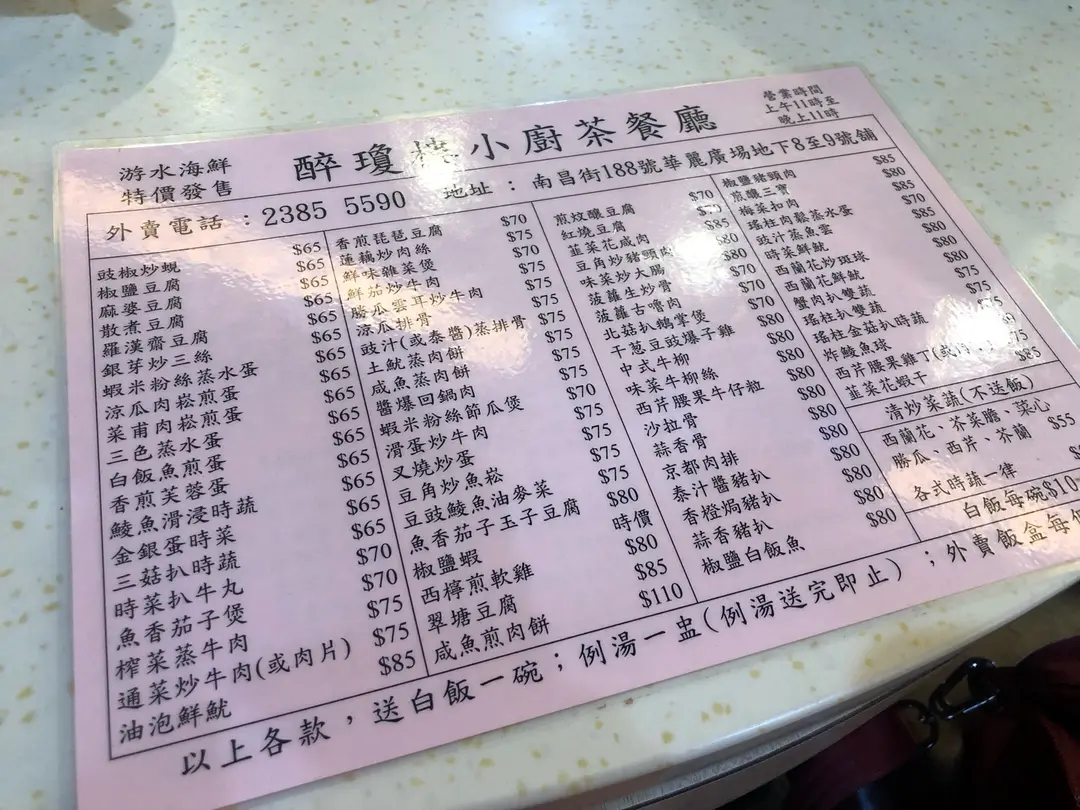 游水海鮮
特價發售
醉瓊樓小廚茶餐廳
營業時間
上午11時至
晚上11時
外賣電話：2385 5590 地址：南昌街188號華麗廣場地下8至9號舖
豉椒炒蜆 $65
椒鹽豆腐 $65
麻婆豆腐 $65
散煮豆腐 $65
羅漢齋豆腐 $65
銀芽炒三絲 $65
蝦米粉絲蒸水蛋 $65
涼瓜肉崧煎蛋 $65
菜甫肉崧煎蛋 $65
三色蒸水蛋 $65
白飯魚煎蛋 $65
香煎芙蓉蛋 $65
鯪魚滑浸時蔬 $65
金銀蛋時菜 $65
三菇扒時蔬 $65
時菜扒牛丸 $70
魚香茄子煲 $70
榨菜蒸牛肉 $75
通菜炒牛肉(或肉片) $75
油泡鮮魷 $85
香煎琵琶豆腐 $70
蓮藕炒肉絲 $75
鮮味雜菜煲 $70
鮮茄炒牛肉 $75
勝瓜雲耳炒牛肉 $75
涼瓜排骨 $75
豉汁(或泰醬)蒸排骨 $75
土魷蒸肉餅 $75
咸魚蒸肉餅 $75
醬爆回鍋肉 $75
蝦米粉絲節瓜煲 $70
滑蛋炒牛肉 $75
叉燒炒蛋 $75
豆角炒魚崧 $75
豆豉鯪魚油麥菜 $75
魚香茄子玉子豆腐 $80
椒鹽蝦 時價
西檸煎軟雞 $80
翠塘豆腐 $85
咸魚煎肉餅 $110
煎炆釀豆腐 $70
紅燒豆腐
韮菜花咸肉 $85
豆角炒豬頸肉 $80
味菜炒大腸 $80
菠蘿生炒骨 $70
菠蘿古嚕肉 $70
北菇扒鵝掌煲 $70
干蔥豆豉爆子雞 $80
中式牛柳 $80
味菜牛柳絲 $80
西芹腰果牛仔粒 $80
沙拉骨 $80
蒜香骨 $80
京都肉排 $80
泰汁醬豬扒 $80
香橙焗豬扒 $80
蒜香豬扒 $80
椒鹽白飯魚 $80
椒鹽豬頸肉 $85
煎釀三寶 $80
梅菜扣肉 $85
瑤柱肉鬆蒸水蛋 $70
豉汁蒸魚雲 $85
時菜鮮魷 $80
西蘭花炒斑球 $80
西蘭花鮮魷 $80
蟹肉扒雙蔬 $75
瑤柱扒雙蔬 $75
瑤柱金菇扒時蔬
炸鯪魚球
西芹腰果雞丁(或 $75
韮菜花蝦干 $85
清炒菜蔬(不送飯)
西蘭花、芥菜膽、菜心
勝瓜、西芹、芥蘭 $55
各式時蔬一律
白飯每碗$10
以上各款，送白飯一碗；例湯一盅(例湯送完即止)；外賣飯盒每